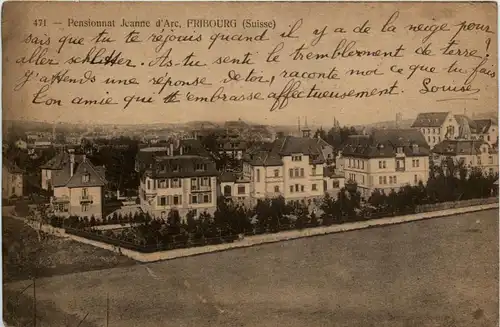 471 — Pensionnat Jeanne d'Arc, FRIBOURG (Suisse)
il y a de la neige pour
sais que tu te réjouis quand
aller schlitter. As-tu senti le tremblement de terre?
J'attends une réponse de toi, raconte moi ce que tu fais
Ton amie qui t'embrasse affectueusement. Louise